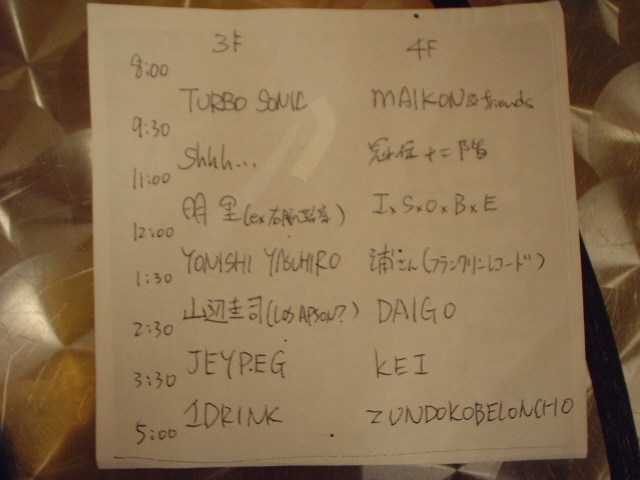 3F 4F
8:00
TURBO SONIC MAIKON & friends
9:30
Shhh... 冠位十二階
11:00
明里 (ex右脳 ) I×S×O×B×E
12:00
YONISHI YASUHIRO 浦さん(フランクリンレコード)
1:30
山辺圭司(LOS APSON?) DAIGO
2:30
JEYPEG KEI
3:30
1DRINK ZUNDOKOBELONCHO
5:00